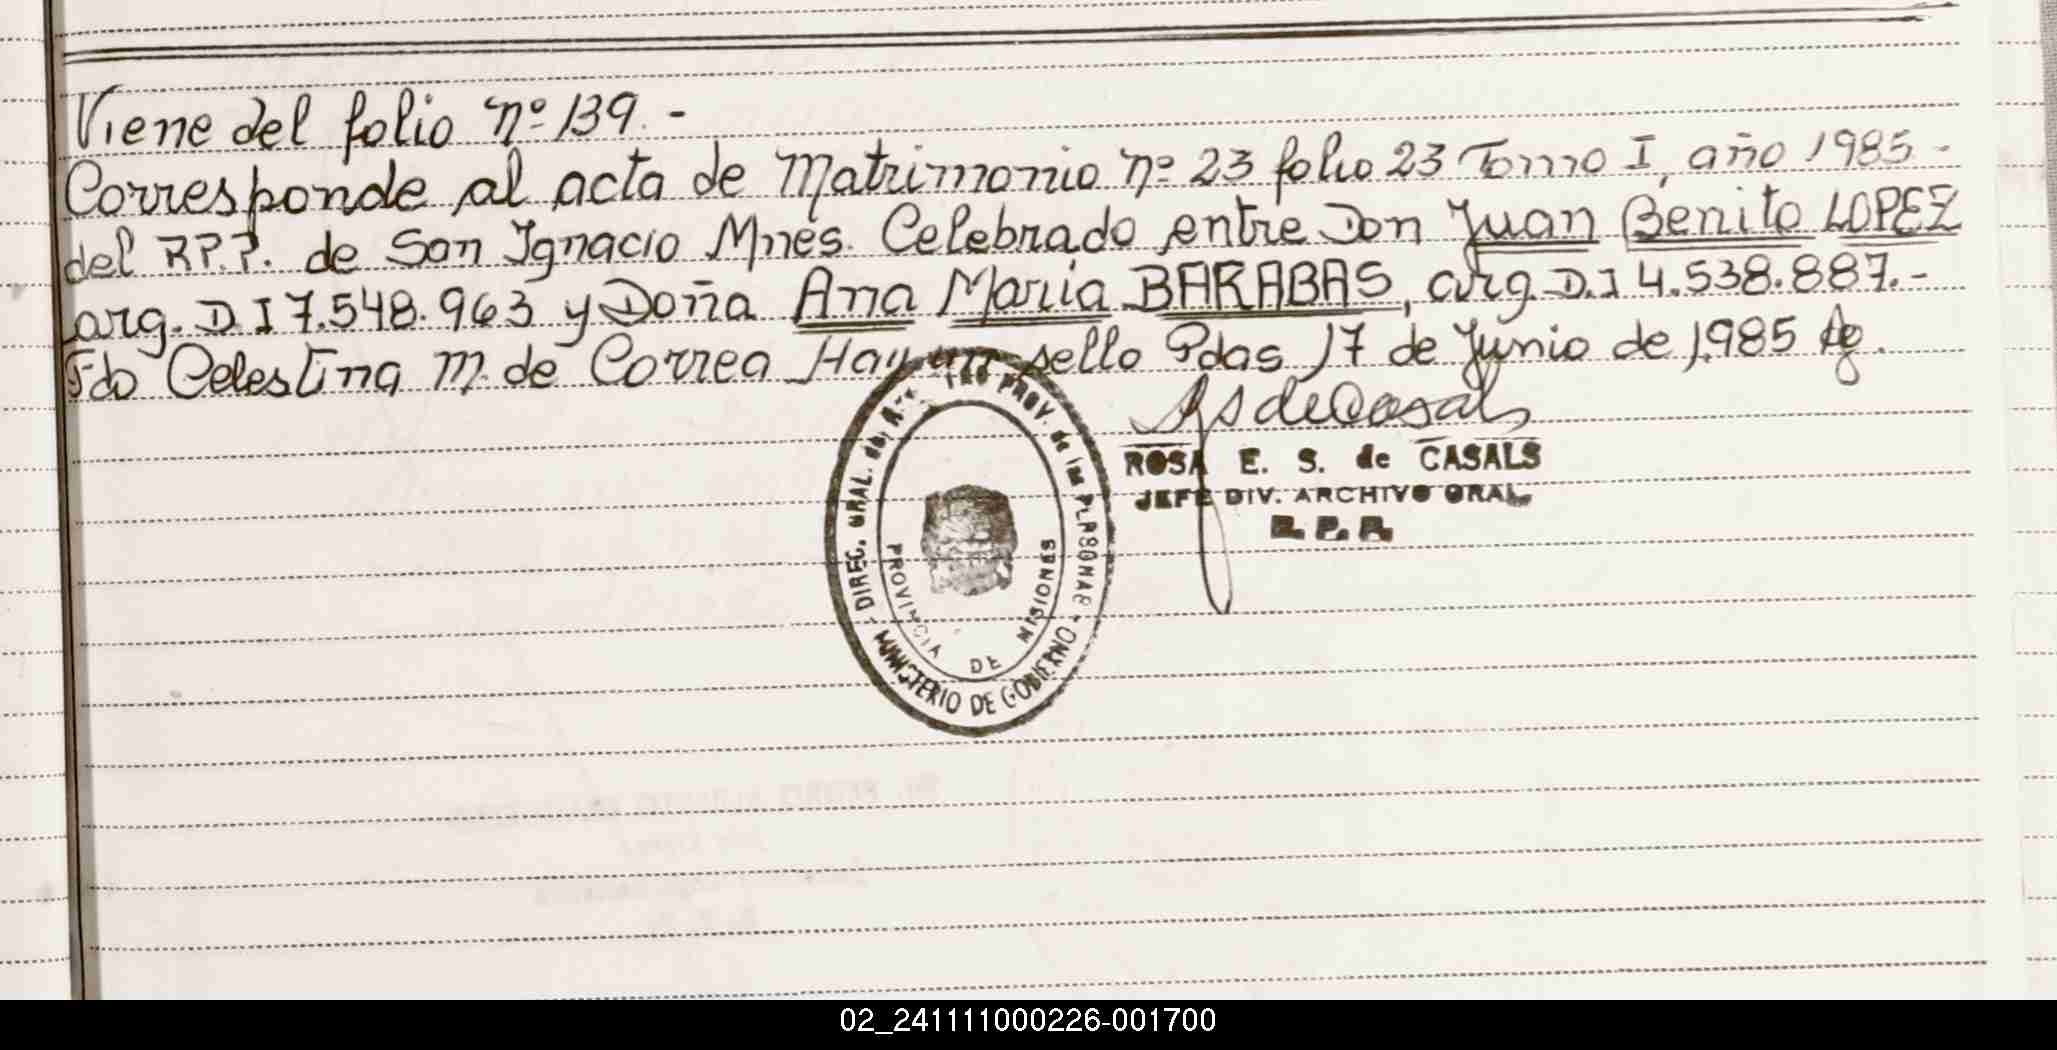 Viene del folio nº 139.-
Corresponde al acta de Matrimonio nº 23 folio 23 Tomo I, año 1985-
del R.P.P. de San Ignacio Mnes. Celebrado entre Don Juan Benito LOPEZ
arg. D.I 7.548.963 y Doña Ana María BARABAS, arg. D.I 4.538.887.-
Fdo Celestina M. de Correa Hay un sello Pdas 17 de Junio de 1.985
ROSA E. S. de CASALS
JEFE DIV. ARCHIVO GRAL.
R. P. P.
DIREC. GRAL. del PROV. de las PERSONAS
PROVINCIA DE MISIONES
MINISTERIO DE GOBIERNO
02_241111000226-001700